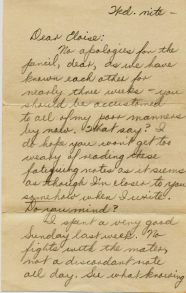 Wed. nite -
Dear Cloise:
No apologies for the
pencil, dear, as we have
known each other for
nearly three weeks - you
should be accustomed
to all of my poor manners
by now. What say? I
do hope you won't get too
weary of reading these
fatiguing notes as it seems
as though I'm closer to you
somehow when I write.
Do you mind?
I spent a very good
Sunday last week. No
fights with the mater,
not a discordant note
all day. See what knowing